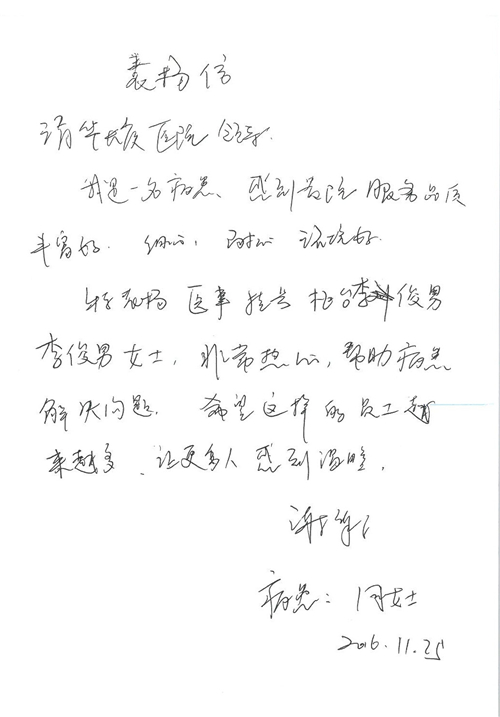 表扬信
清华长庚医院领导.
我是一名病患、感到贵院服务品质
丰富好. 细心, 耐心
特表扬 医事 挂号 柜台李俊男
李俊男女士, 非常热心, 帮助病患
解决问题. 希望这样的员工越
来越多、让更多人感到温暖,
谢谢!
病患: 闫女士
2016.11.25